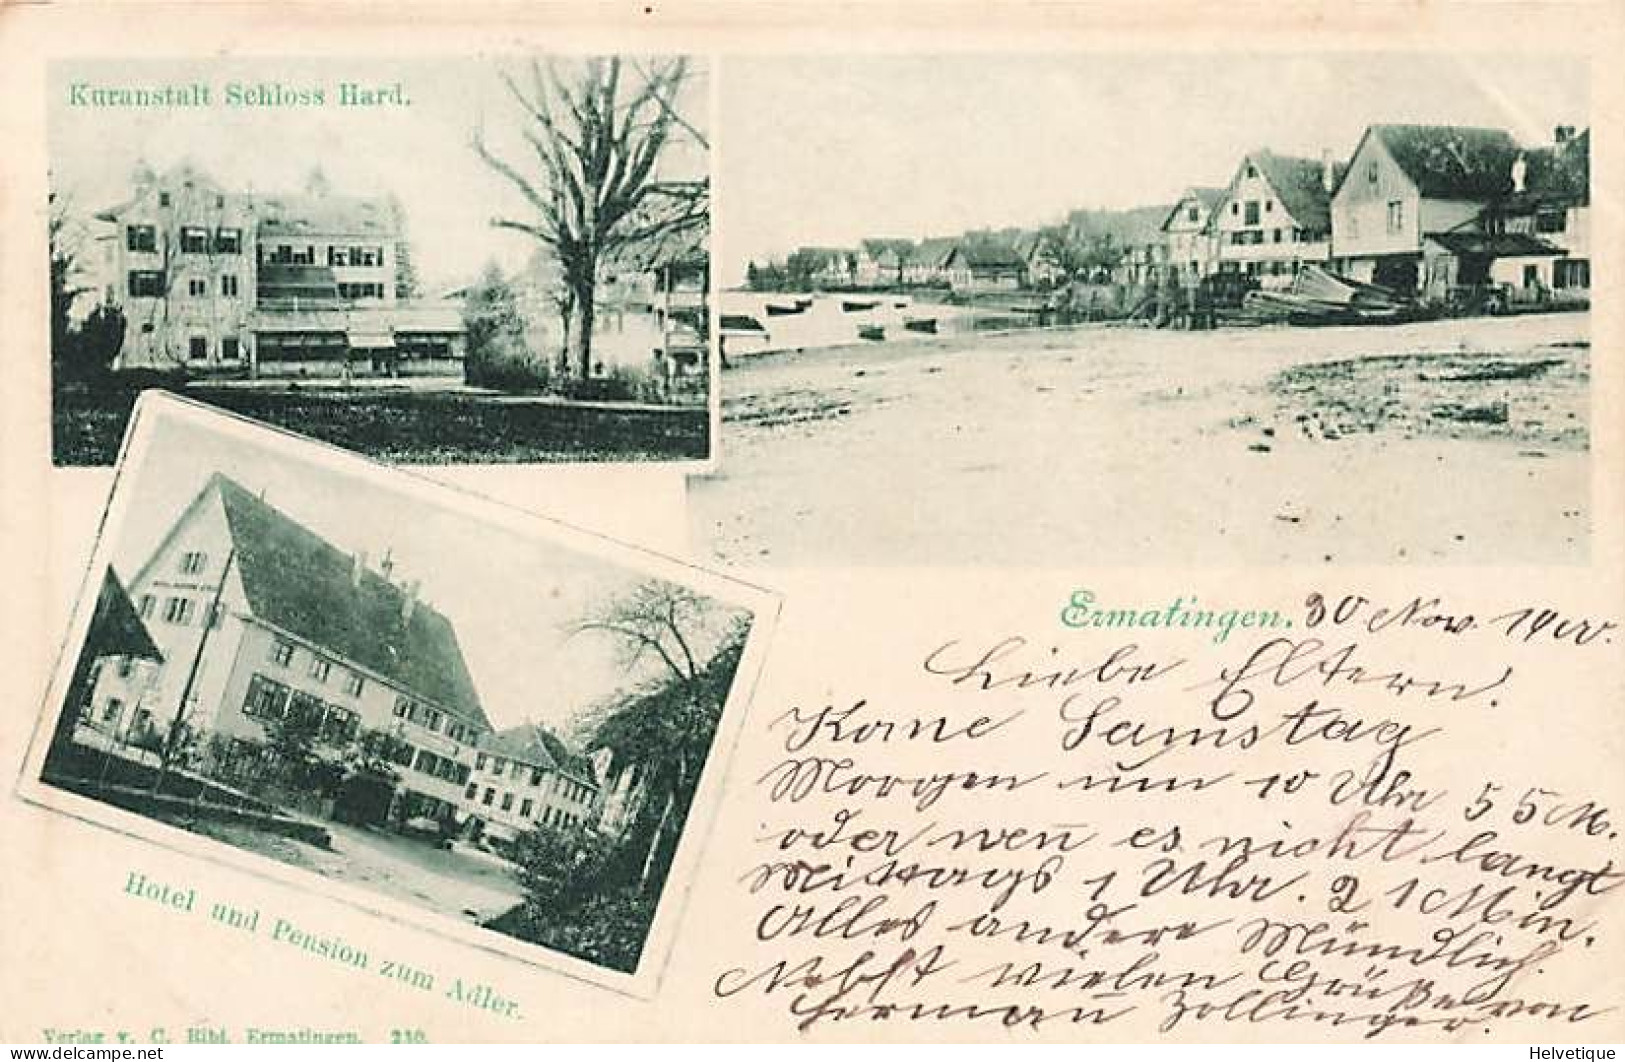 Kuranstalt Schloss Hard.
Ermatingen. 30 Nov. 1900.
Liebe Eltern!
Kome Samstag
Morgen um 10 Uhr 55 M.
oder wen̄ es nicht langt
Mittags 1 Uhr. 21 Min.
Alles andere Mündlich.
Nebst vielen Grüßen von
Herman̄ Zollinger.
Hotel und Pension zum Adler.
Verlag v. C. Ribi, Ermatingen. 210.
delcampe.net
Helvetique